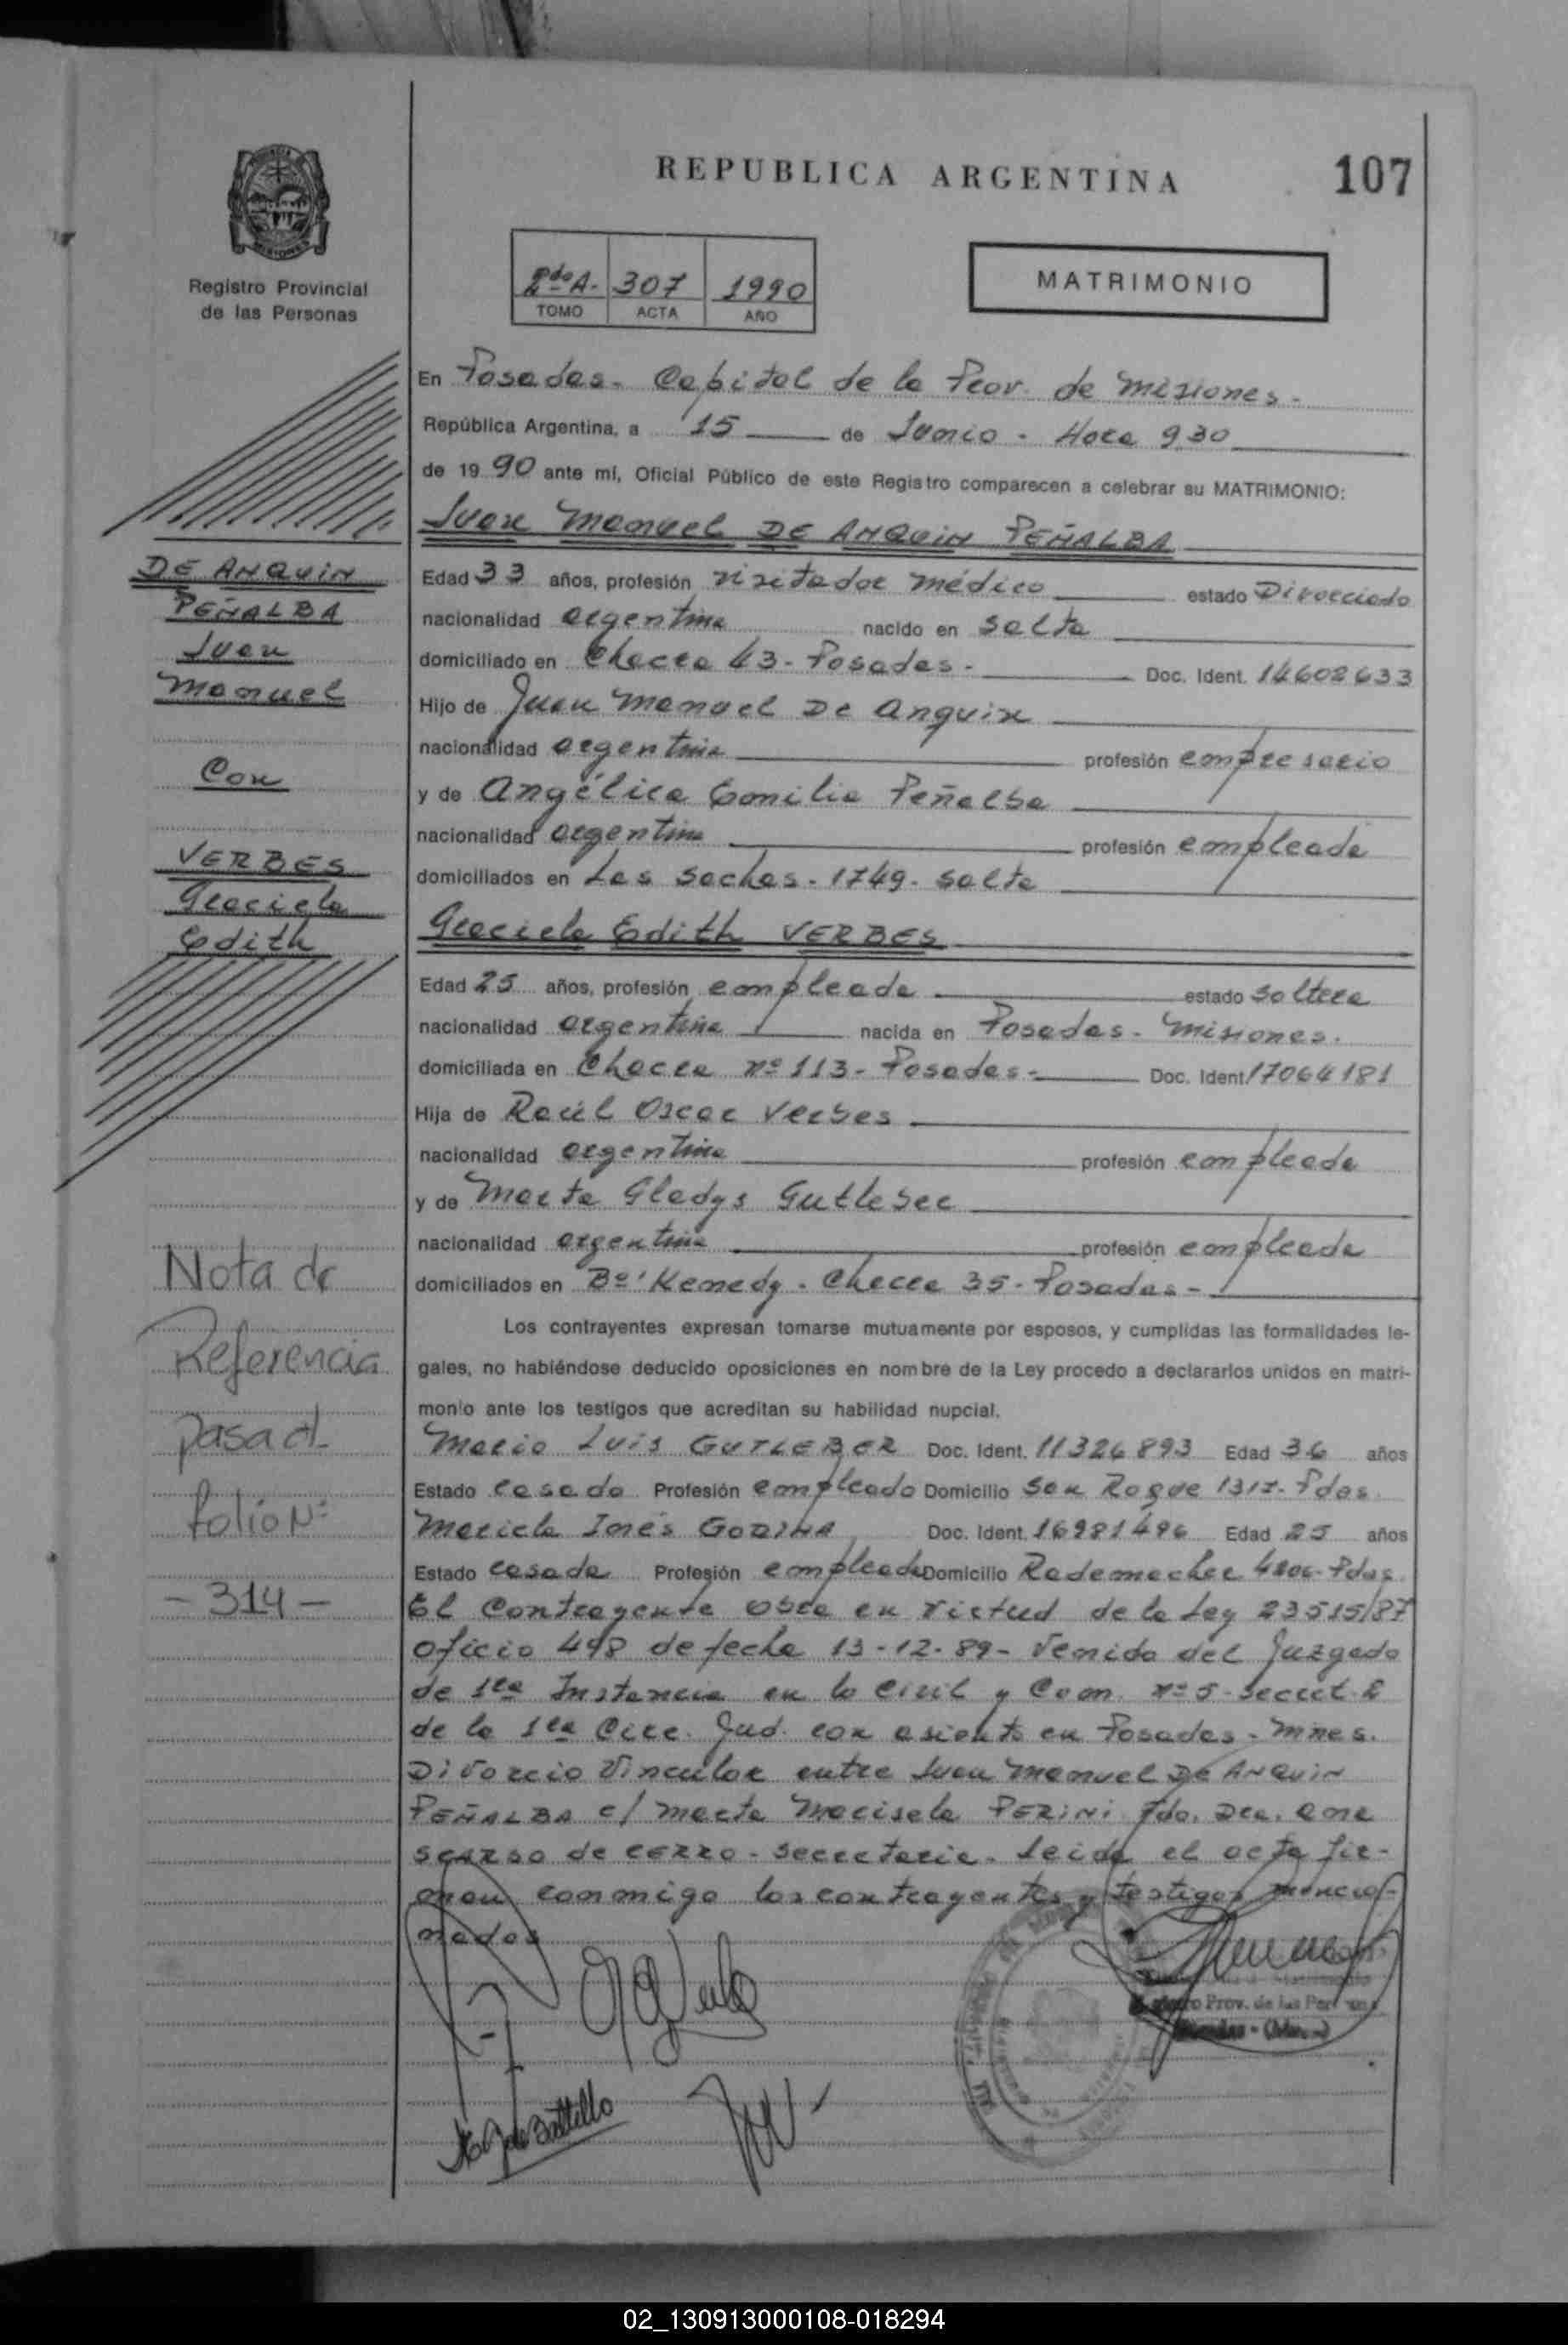 REPUBLICA ARGENTINA
107
Registro Provincial
de las Personas
2do A. 307 1990
TOMO ACTA AÑO
MATRIMONIO
En Posadas - Capital de la Prov. de Misiones -
República Argentina, a 15 de Junio - Hora 9,30
de 1990 ante mí, Oficial Público de este Registro comparecen a celebrar su MATRIMONIO:
Juan Manuel DE ANQUIN PEÑALBA
Edad 33 años, profesión visitador médico estado Divorciado
nacionalidad argentina nacido en Salta
domiciliado en Chacra 43 - Posadas - Doc. Ident. 14602633
Hijo de Juan Manuel De Anquin
nacionalidad argentina profesión empresario
y de Angélica Emilia Peñalba
nacionalidad argentina profesión empleada
domiciliados en Las - 1749 - Salta
Graciela Edith VERBES
Edad 25 años, profesión empleada estado soltera
nacionalidad argentina nacida en Posadas - Misiones.
domiciliada en Chacra nº 113 - Posadas - Doc. Ident 17064181
Hija de Raúl Oscar Verbes
nacionalidad argentina profesión empleado
y de Marta Gladys Gutleber
nacionalidad argentina profesión empleada
domiciliados en Bº Kenedy - Chacra 35 - Posadas -
Los contrayentes expresan tomarse mutuamente por esposos, y cumplidas las formalidades le-
gales, no habiéndose deducido oposiciones en nombre de la Ley procedo a declararlos unidos en matri-
monio ante los testigos que acreditan su habilidad nupcial.
Mario Luis GUTLEBER Doc. Ident. 11326893 Edad 36 años
Estado casado Profesión empleado Domicilio San Roque Pdas.
Mariela Inés GODINA Doc. Ident. 16981496 Edad 25 años
Estado casada Profesión empleada Domicilio Rademacher Pdas.
El contrayente obra en virtud de la Ley 23515/87
Oficio 498 de fecha 13-12-89 - Venido del Juzgado
de 1ra Instancia en lo Civil y Com. nº 5 - Secret.
de la 1ra Circ. Jud. con asiento en Posadas - Mnes.
Divorcio Vincular entre Juan Manuel DE ANQUIN
PEÑALBA c/ Marta Marisela PERINI Fdo. Dra. Ana
de CERRO - Secretaria - Leida el acta fir-
man conmigo los contrayentes y testigos mencio-
nados
DE ANQUIN
PEÑALBA
Juan
Manuel
Con
VERBES
Graciela
Edith
Nota de
Referencia
pasa al
folio Nº
- 314 -
Prov. de las Personas
02_130913000108-018294